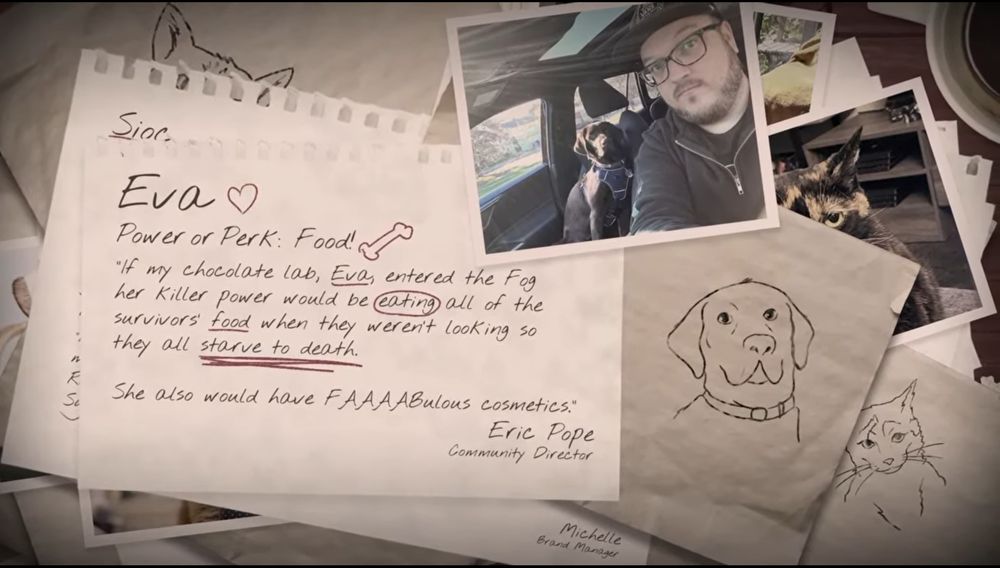 Eva
Power or Perk: Food!
"If my chocolate lab, Eva, entered the Fog
her Killer power would be eating all of the
survivors' food when they weren't looking so
they all starve to death.
She also would have FAAAABulous cosmetics."
Eric Pope
Community Director
Michelle
Brand Manager